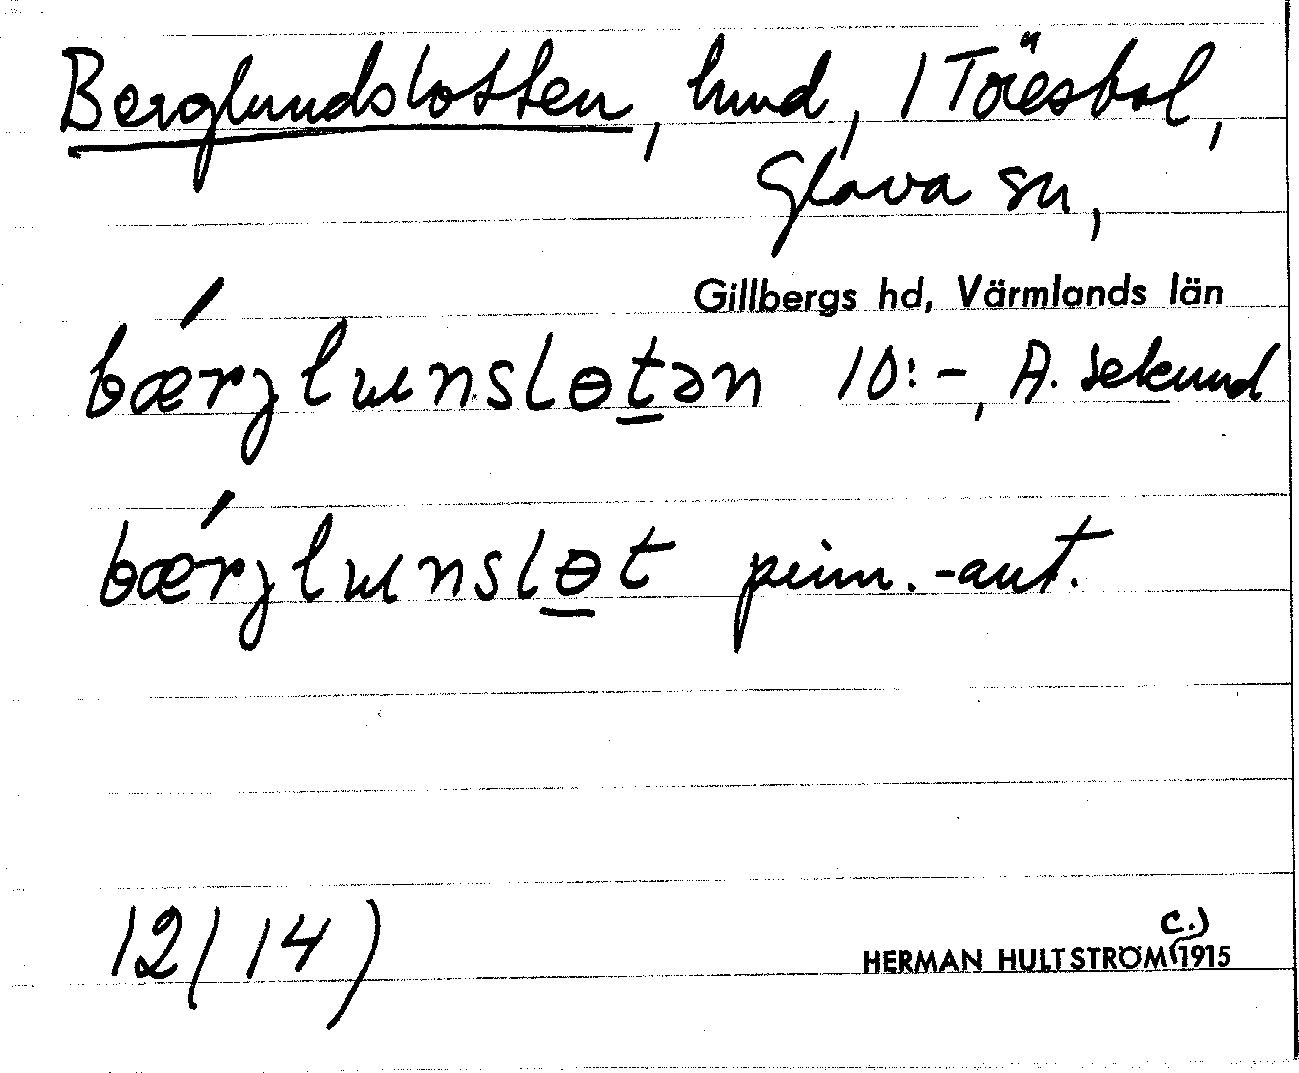 Berglundslotten, lund, 1 Töesbol,
Glava sn,
Gillbergs hd, Värmlands län
bærʒlɯnslɵtən 10:-, A. sekund
bærʒlɯnslɵt -ant.
12(14)
HERMAN HULTSTRÖM (c.) 1915